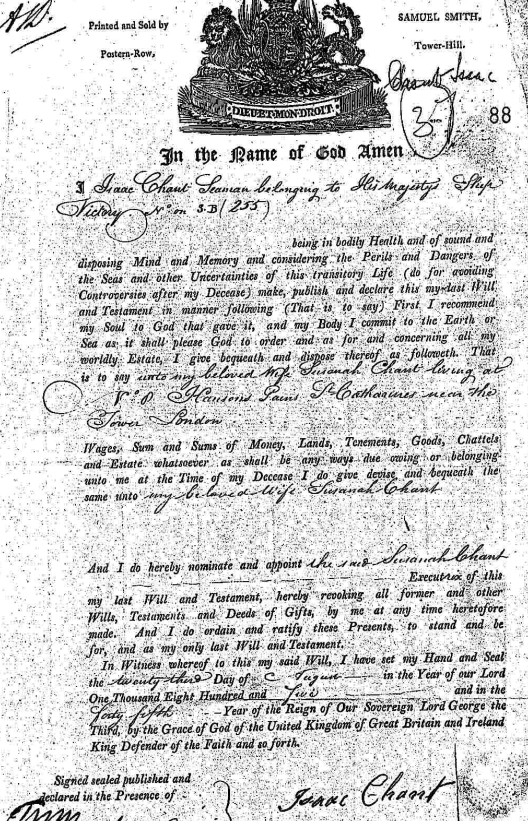 Printed and Sold by
Postern-Row,
SAMUEL SMITH,
Tower-Hill.
Chant Isaac
3
88
DIEU ET MON DROIT
In the Name of God Amen
I Isaac Chant Seaman belonging to His Majestys Ship
Victory No on S.B (255)
being in bodily Health and of sound and
disposing Mind and Memory and considering the Perils and Dangers of
the Seas and other Uncertainties of this transitory Life (do for avoiding
Controversies after my Decease) make, publish and declare this my last Will
and Testament in manner following (That is to say) First I recommend
my Soul to God that gave it, and my Body I commit to the Earth or
Sea as it shall please God to order and as for and concerning all my
worldly Estate, I give bequeath and dispose thereof as followeth. That
is to say unto my beloved Wife Susanah Chant living at
No 8 Hansons St Catharines near the
Tower London
Wages, Sum and Sums of Money, Lands, Tenements, Goods, Chattels
and Estate whatsoever as shall be any ways due owing or belonging
unto me at the Time of my Decease I do give devise and bequeath the
same unto my beloved Wife Susanah Chant
And I do hereby nominate and appoint the said Susanah Chant
Executrix of this
my last Will and Testament, hereby revoking all former and other
Wills, Testaments and Deeds of Gifts, by me at any time heretofore
made. And I do ordain and ratify these Presents, to stand and be
for, and as my only last Will and Testament.
In Witness whereof to this my said Will, I have set my Hand and Seal
the twenty third Day of August in the Year of our Lord
One Thousand Eight Hundred and Five and in the
forty fifth Year of the Reign of Our Sovereign Lord George the
Third, by the Grace of God of the United Kingdom of Great Britain and Ireland
King Defender of the Faith and so forth.
Signed sealed published and
declared in the Presence of
Isaac Chant